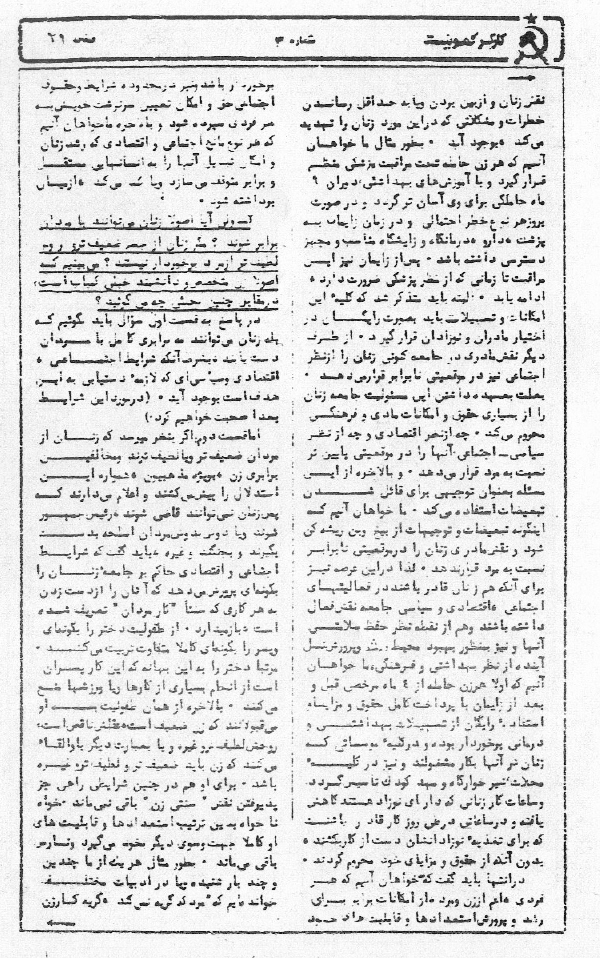 کارگر کمونیست
شماره ۳
صفحه ۲۹
نقش زنان و ازبین بردن ویا به حداقل رساندن
خطرات و مشکلاتی که دراین مورد زنان را تهدید
می‌کند بوجود آید • بطور مثال ما خواهان
آنیم که هر زن حامله تحت مراقبت پزشکی منظم
قرار گیرد و با آموزش‌های بهداشتی، دوران ۹
ماه حاملگی برای وی آسان تر گردد و در صورت
بروز هر نوع خطر احتمالی و در زمان زایمان به
پزشک، دارو، درمانگاه و زایشگاه مناسب و مجهز
دسترسی داشته باشد • پس از زایمان نیز این
مراقبت تا زمانی که از نظر پزشکی ضرورت دارد
ادامه یابد • البته باید متذکر شد که کلیه این
امکانات و تسهیلات باید بصورت رایگان در
اختیار مادران و نوزادان قرار گیرد • از طرف
دیگر نقش مادری در جامعه کنونی زنان را ازنظر
اجتماعی نیز در موقعیتی نابرابر قرار می‌دهد •
بعلت بعهده داشتن این مسئولیت جامعه زنان
را از بسیاری حقوق و امکانات مادی و فرهنگی
محروم می‌کند • چه ازنظر اقتصادی و چه از نظر
سیاسی - اجتماعی آنها را در موقعیتی پایین تر
نسبت به مرد قرار می‌دهد • و بالاخره از این
مسئله بعنوان توجیهی برای قائل شدن
تبعیضات استفاده می‌کند • ما خواهان آنیم که
اینگونه تبعیضات و توجیهات از بیخ و بن ریشه کن
شود و نقش مادری زنان را درموقعیتی نابرابر
نسبت به مرد قرار ندهد • لذا دراین عرصه نیز
برای آنکه هم زنان قادر باشند در فعالیتهای
اجتماعی، اقتصادی و سیاسی جامعه نقش فعال
داشته باشند وهم از نقطه نظر حفظ سلامتی
آنها و نیز بمنظور بهبود محیط رشد و پرورش نسل
آینده از نظر بهداشتی و فرهنگی، ما خواهان
آنیم که اولا هر زن حامله از ۴ ماه مرخصی قبل و
بعد از زایمان با پرداخت کامل حقوق و مزایا،
استفاده رایگان از تسهیلات بهداشتی و
درمانی برخوردار بوده و در کلیه موسساتی که
زنان در آنها بکار مشغولند و نیز در کلیه
محلات شیر خوارگاه و مهد کودک تاسیس گردد،
وساعات کار زنانی که دارای نوزاد هستند کاهش
یافته و درساعاتی درطی روز کار قادر باشند
که برای تغذیه نوزادانشان دست از کار بکشند
بدون آنکه از حقوق و مزایای خود محروم گردند •
درانتها باید گفت که خواهان آنیم که هر
فردی اعم از زن و مرد از امکانات برابر برای
رشد و پرورش استعدادها و قابلیت های خود
برخوردار باشد و نیز در محدوده شرایط و حقوق
اجتماعی حق و امکان تعیین سرنوشت خویش به
هر فردی سپرده شود و بالاخره ما خواهان آنیم
که هر نوع مانع اجتماعی و اقتصادی که رشد زنان
و امکان تبدیل آنها را به انسانهایی مستقل
و برابر متوقف می سازد ویا کند می‌کند، از میان
بوداشته شود •
سئوال آیا اصولا زنان می‌توانند با مردان
برابر شوند ؟ مگر زنان از جسم ضعیف تر و روح
لطیف تر از مرد برخوردار نیستند ؟ می‌بینیم که
اصولا زن متخصص و دانشمند خیلی کمیاب است،
درمقابل چنین بحثی چه می‌گوئید ؟
در پاسخ به قسمت اول سؤال باید بگوئیم که
بله زنان می‌توانند به برابری کامل با مردان
دست یابند بشرط آنکه شرایط اجتماعی،
اقتصادی و سیاسی‌ای که لازمه دستیابی به این
هدف است بوجود آید • (درمورد این شرایط
بعدا صحبت خواهیم کرد)
اما قسمت دوم، اگر بنظر میرسد که زنان از
مردان ضعیف تر و یا نحیف ترند و مخالفین
برابری زن، بویژه مذهبیون همواره این
استدلال را پیش می‌کشند و اعلام می‌دارند که
پس زنان نمی‌توانند قاضی شوند، رئیس جمهور
شوند ویا دوش بدوش مردان اسلحه بدست
بگیرند و بجنگند و غیره، باید گفت که شرایط
اجتماعی و اقتصادی حاکم بر جامعه زنان را
بگونه‌ای پرورش می‌دهد که آنان را از دست زدن
به هر کاری که سنتاً "کار مردان" تعریف شده
است باز میدارد • از طفولیت دختر را بگونه‌ای
و پسر را بگونه‌ای کاملا متفاوت تربیت می‌کنند •
مرتبا دختر را به این بهانه که این کار پسران
است از انجام بسیاری از کارها ویا ورزشها منع
می‌کنند • بالاخره از همان طفولیت به او
می‌قبولانند که زن ضعیف است، عقلش ناقص است،
روحش لطیف تر و غیره و یا بعبارت دیگر باو القاء
می‌کنند که زن باید ضعیف تر و لطیف تر و غیره
باشد • برای او هم در چنین شرایطی راهی جز
پذیرفتن نقش "سنتی زن" باقی نمی‌ماند • خواه
نا خواه به این ترتیب استعدادها و قابلیت های
او کاملا جهت و سوی دیگر بخود می‌گیرد و نارس
باقی می‌ماند • بطور مثال هریک از ما چندین
و چند بار شنیده ویا در ادبیات مختلف
خوانده‌ایم که "مرد که گریه نمی‌کند" "گریه کار زن